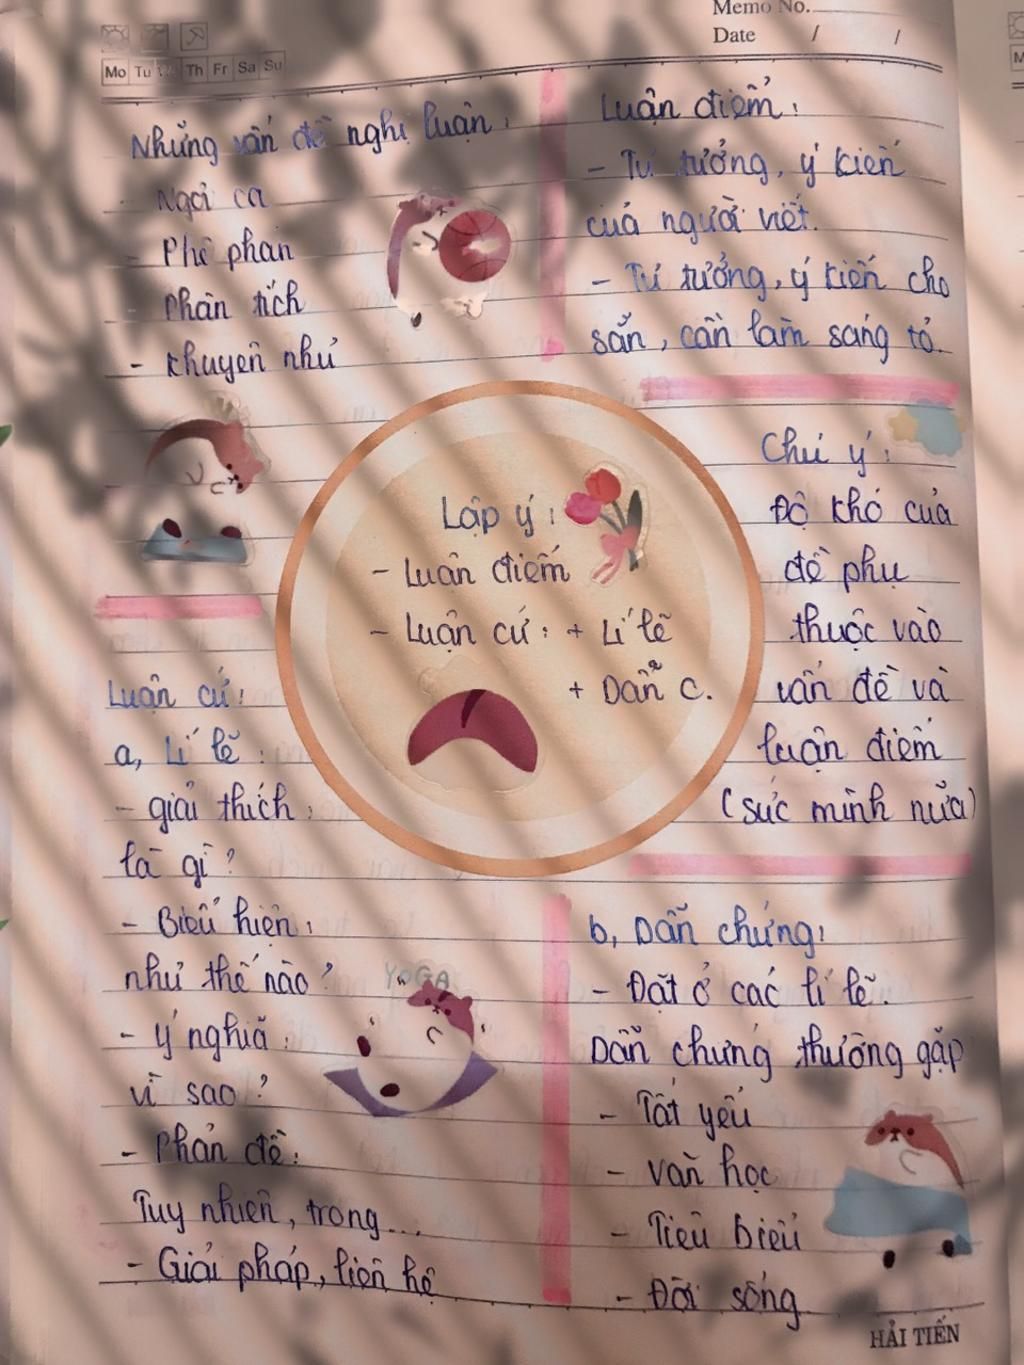 Memo No.
Date / /
Mo Tu We Th Fr Sa Su
Những vấn đề nghị luận:
- Ngợi ca
- Phê phán
- Phân tích
- Khuyên nhủ
Luận điểm:
- Tư tưởng, ý kiến
của người viết.
- Tư tưởng, ý kiến cho
sẵn, cần làm sáng tỏ.
Lập ý:
- Luận điểm
- Luận cứ: + Lí lẽ
+ Dẫn c.
Chú ý:
Độ khó của
đề phụ
thuộc vào
vấn đề và
luận điểm
(sức mình nữa)
Luận cứ:
a, Lí lẽ:
- giải thích:
là gì?
- Biểu hiện:
như thế nào?
- Ý nghĩa:
vì sao?
- Phản đề:
Tuy nhiên, trong...
- Giải pháp, liên hệ
YOGA
b, Dẫn chứng:
- Đặt ở các lí lẽ.
Dẫn chứng thường gặp
- Tất yếu
- Văn học
- Tiêu biểu
- Đời sống
HẢI TIẾN